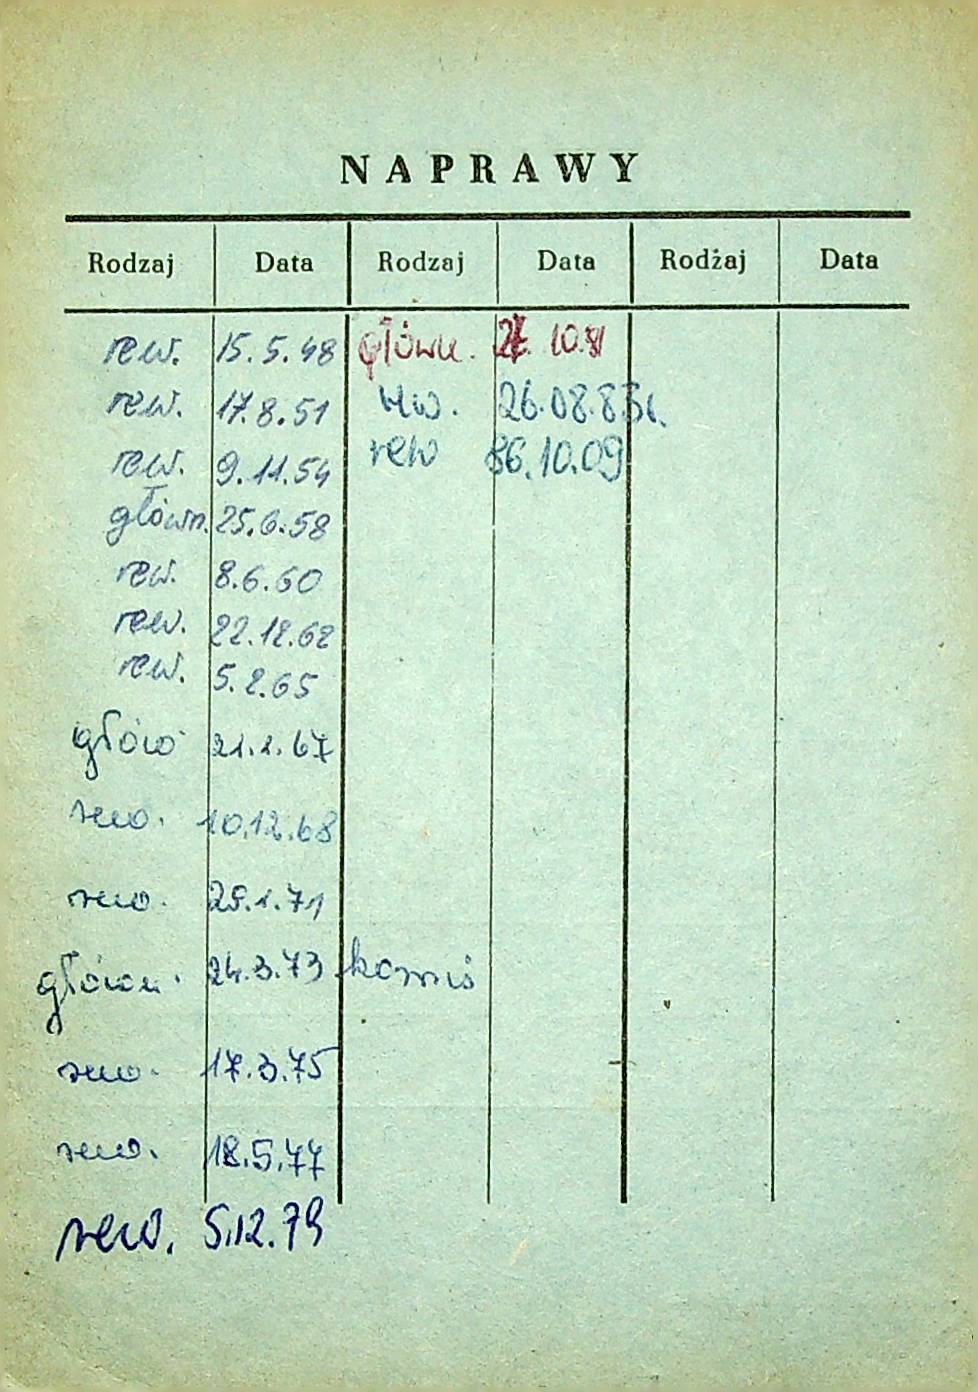 NAPRAWY
Rodzaj Data Rodzaj Data Rodzaj Data
rew. 15.5.48 główn. 10.81
rew. 17.8.51 rew. 26.08.83
rew. 9.11.54 rew 86.10.09
główn. 25.6.58
rew. 8.6.60
rew. 22.12.62
rew. 5.2.65
głów 21.2.67
rew. 10.12.68
rew. 25.1.71
główn. 24.3.73
rew. 17.3.75
rew. 18.5.77
rew. 5.12.79